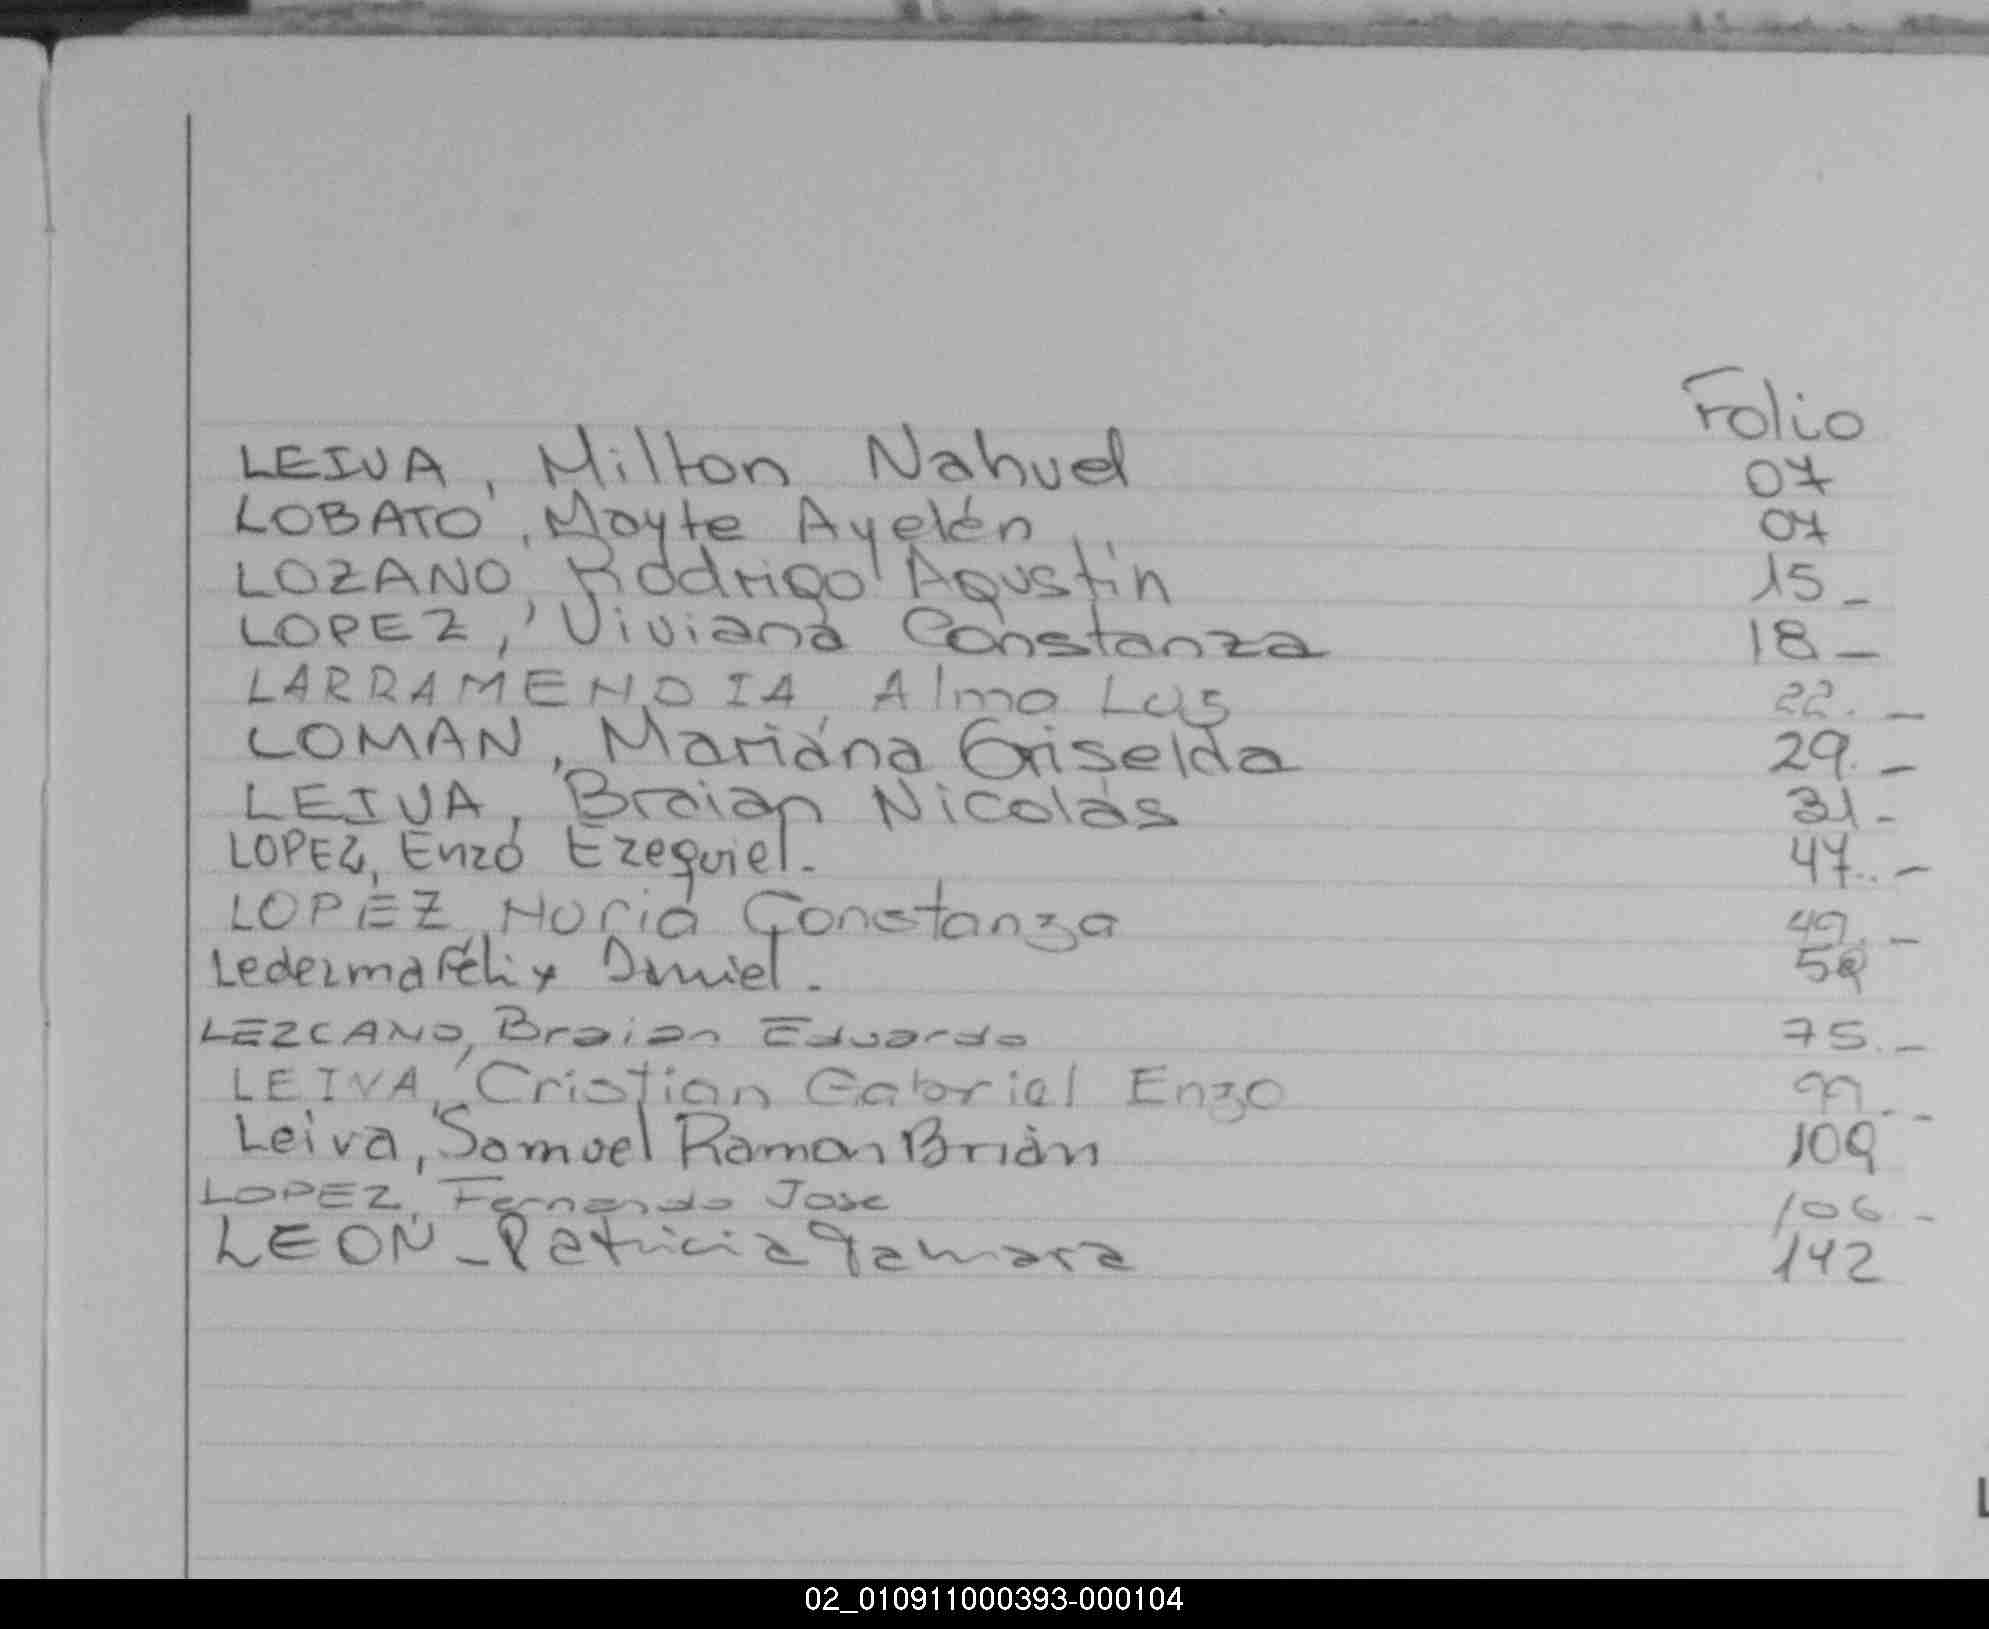 Folio
LEIVA, Milton Nahuel 07
LOBATO, Mayte Ayelén 07
LOZANO, Rodrigo Agustín 15_
LOPEZ, Viviana Constanza 18_
LARRAMENDIA Alma Luz 22._
LOMAN, Mariana Griselda 29._
LEIVA, Braian Nicolás 31_
LOPEZ, Enzo Ezequiel. 47._
LOPEZ, Nuria Constanza 49._
Ledezma Félix Daniel.
LEZCANO, Braian Eduardo 75._
LEIVA, Cristian Gabriel Enzo 99._
Leiva, Samuel Ramon Brian 109
LOPEZ, Fernando Jose 106_
LEON_Patricia Tamara 142
L
02_010911000393-000104